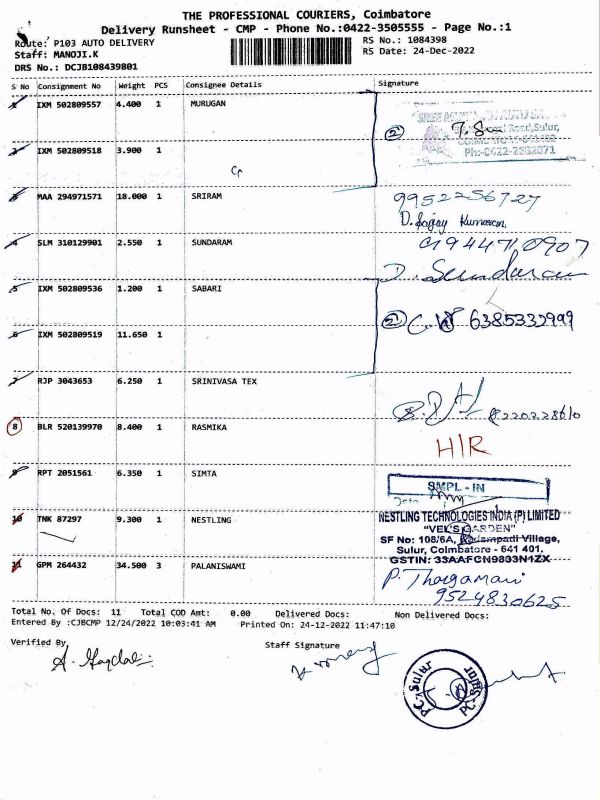 THE PROFESSIONAL COURIERS, Coimbatore
Delivery Runsheet - CMP - Phone No.:0422-3505555 - Page No.:1
Route: P103 AUTO DELIVERY
RS No.: 1084398
Staff: MANOJI.K
RS Date: 24-Dec-2022
DRS No.: DCJB108439801
S No Consignment No Weight PCS Consignee Details Signature
1 IXM 502809557 4.400 1 MURUGAN
Road, Sulur,
2 IXM 502809518 3.900 1
3 MAA 294971571 18.000 1 SRIRAM
9952256727
D. Sanjay Kumaran
4 SLM 310129901 2.550 1 SUNDARAM
944710907
D. Sundaram
5 IXM 502809536 1.200 1 SABARI
6385332999
6 IXM 502809519 11.650 1
7 RJP 3043653 6.250 1 SRINIVASA TEX
8 BLR 520139970 8.400 1 RASMIKA
H/R
9 RPT 2051561 6.350 1 SIMTA
SMPL - IN
10 TNK 87297 9.300 1 NESTLING
NESTLING TECHNOLOGIES INDIA (P) LIMITED
"VEL'S GARDEN"
SF No: 108/6A, Kadampadi Village,
Sulur, Coimbatore - 641 401.
GSTIN: 33AAFCN9803N1ZX
11 GPM 264432 34.500 3 PALANISWAMI
P. Thangamani
9524830625
Total No. Of Docs: 11 Total COD Amt: 0.00 Delivered Docs: Non Delivered Docs:
Entered By :CJBCMP 12/24/2022 10:03:41 AM Printed On: 24-12-2022 11:47:10
Verified By
Staff Signature
PC. Sulur
PC. Sulur